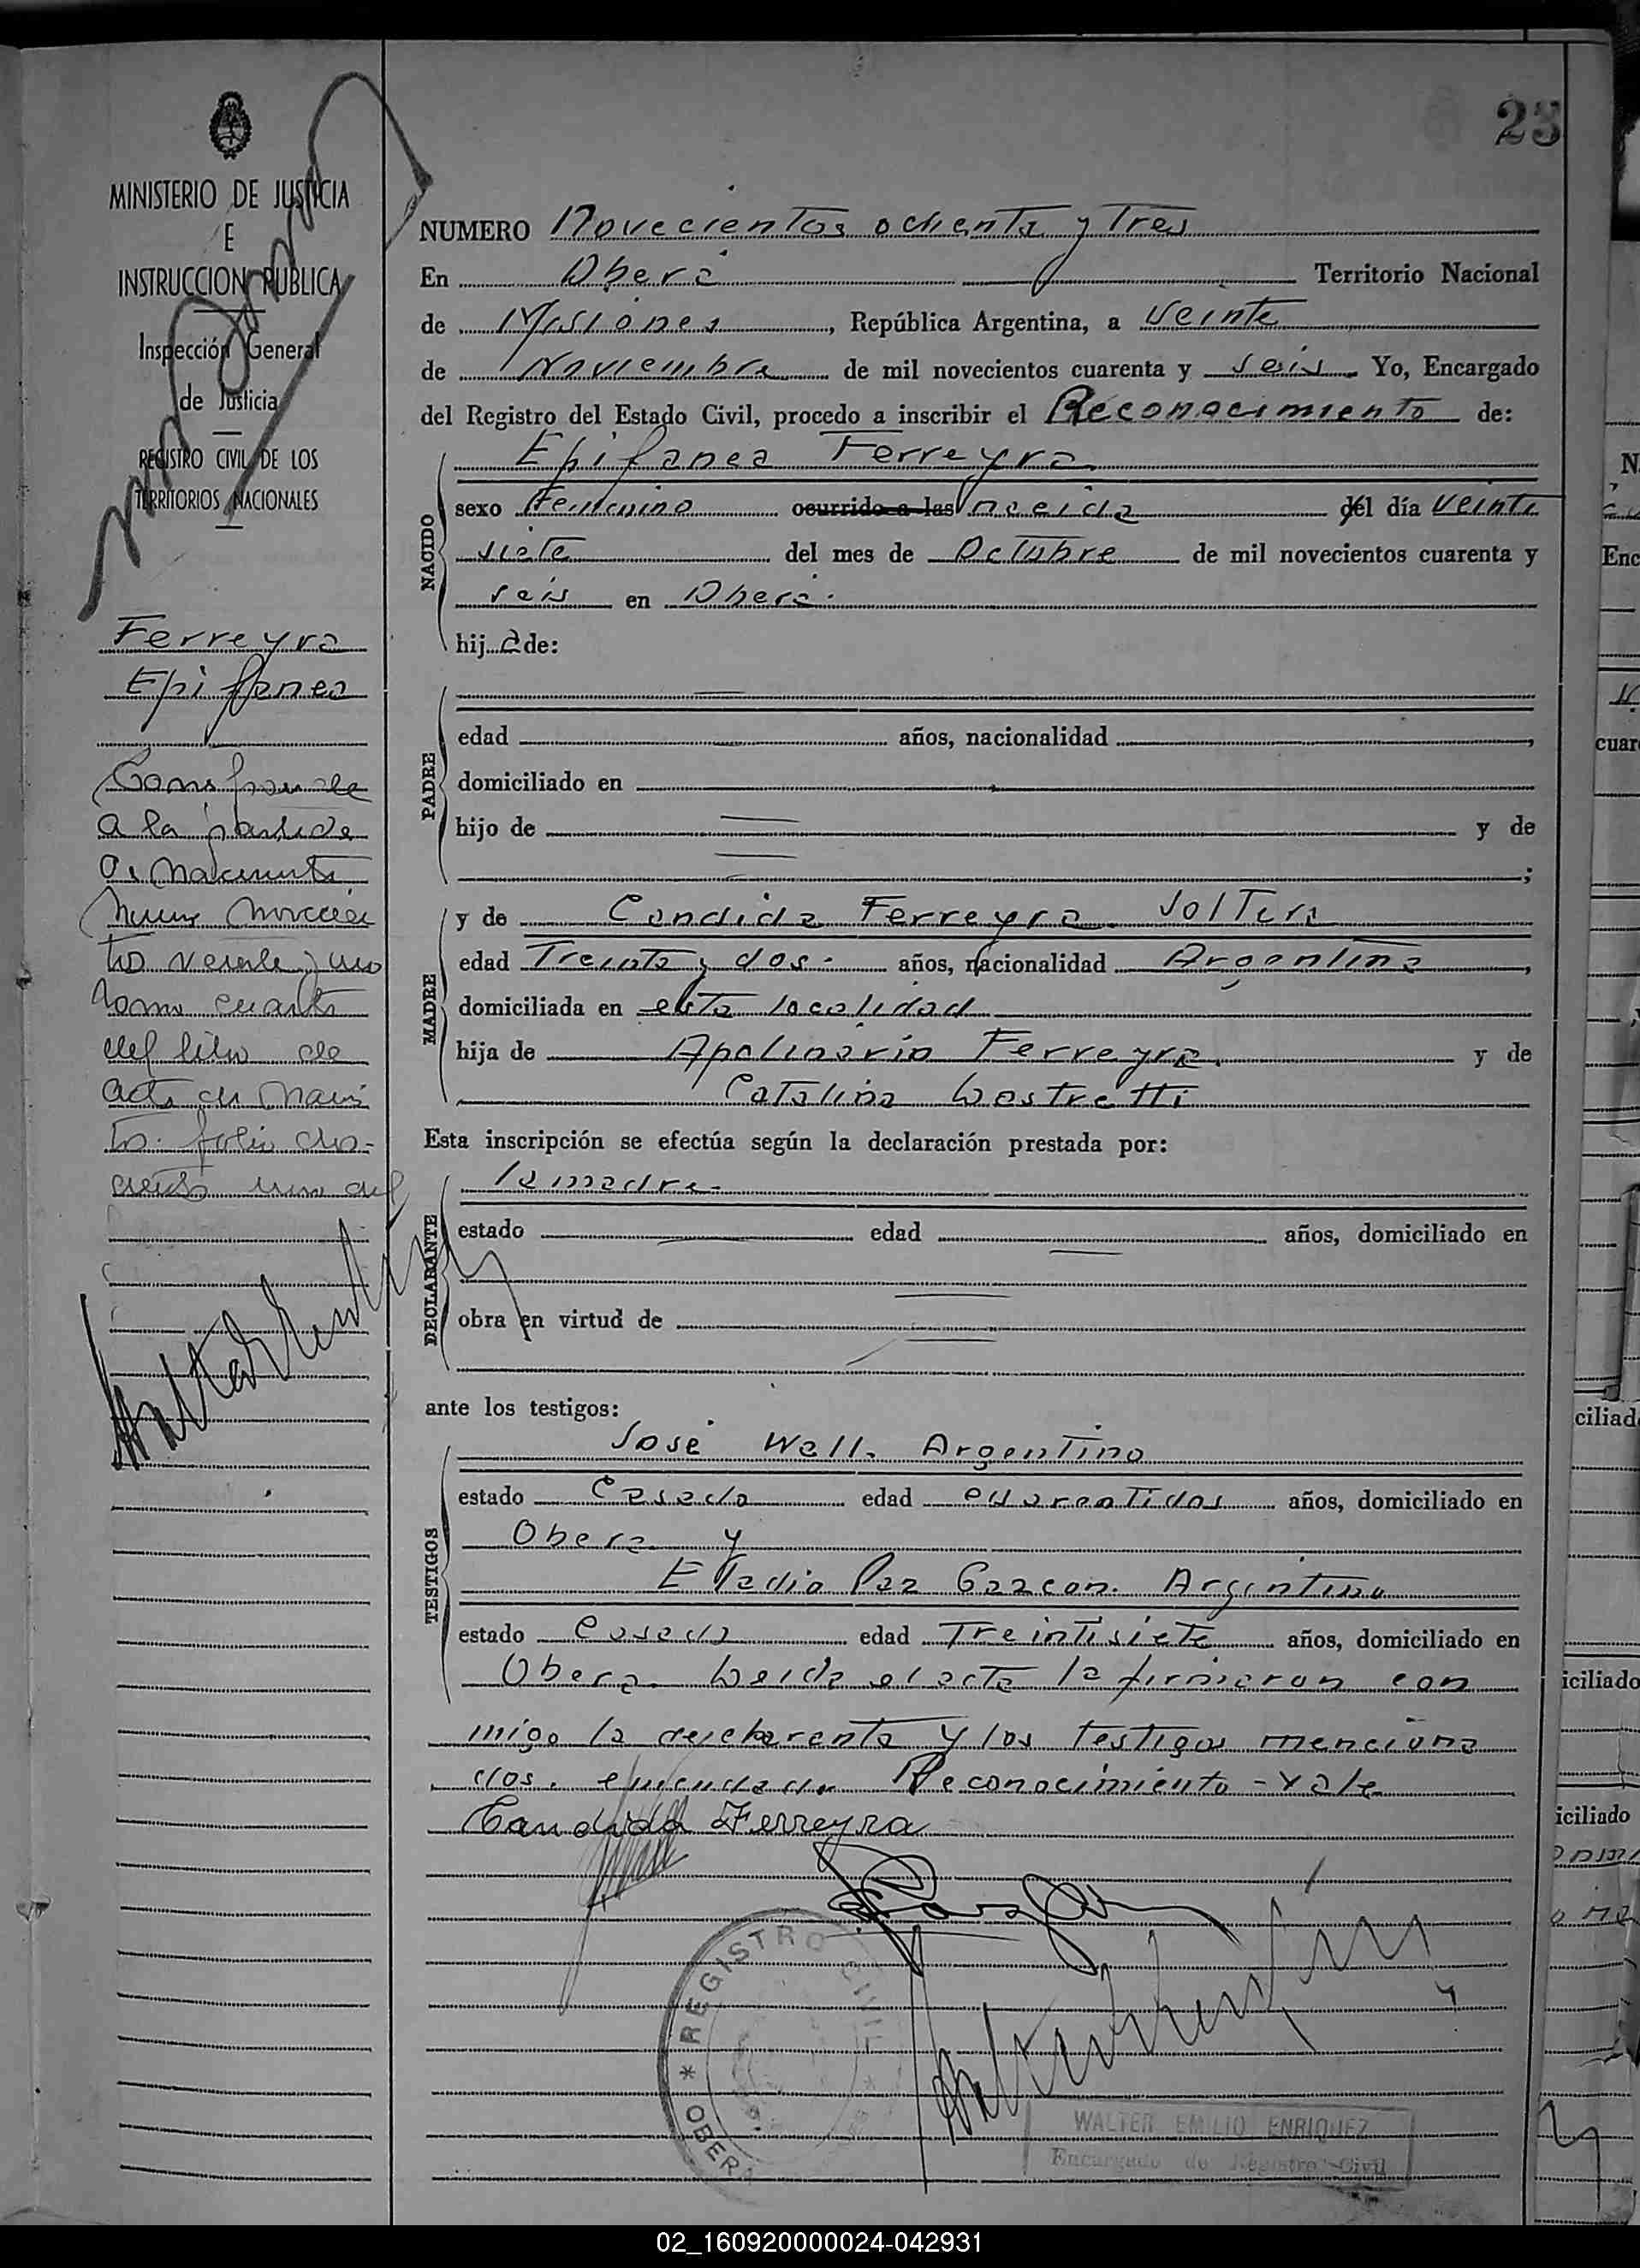 23
MINISTERIO DE JUSTICIA
E
INSTRUCCION PUBLICA
Inspección General
de Justicia
REGISTRO CIVIL DE LOS
TERRITORIOS NACIONALES
Ferreyra
Epifanea
a la partida
del libro de
NUMERO Novecientos ochenta y Tres
En Oberá Territorio Nacional
de Misiones, República Argentina, a Veinte
de Noviembre de mil novecientos cuarenta y seis. Yo, Encargado
del Registro del Estado Civil, procedo a inscribir el Reconocimiento de:
Epifanea Ferreyra
NACIDO
sexo Femenino ocurrido a las nacida del día Veinti
siete del mes de Octubre de mil novecientos cuarenta y
seis en Oberá.
hija de:
PADRE
edad años, nacionalidad ,
domiciliado en
hijo de y de
;
MADRE
y de Candida Ferreyra. Soltera
edad Treinta y dos.- años, nacionalidad Argentina,
domiciliada en esta localidad
hija de Apolinario Ferreyra. y de
Catalina
Esta inscripción se efectúa según la declaración prestada por:
DECLARANTE
la madre.-
estado edad años, domiciliado en
obra en virtud de
ante los testigos:
TESTIGOS
José Wall. Argentino
estado Casado edad cuarentidos años, domiciliado en
Obera y
Eladio Paz Garcon. Argentino
estado Casado edad Treintisiete años, domiciliado en
Obera. Leida el acta la firmaron con
migo la declarante y los testigos menciona
dos. enmendado Reconocimiento - vale
Candida Ferreyra
* REGISTRO CIVIL *
OBERA
WALTER EMILIO ENRIQUEZ
Encargado de Registro Civil
02_160920000024-042931